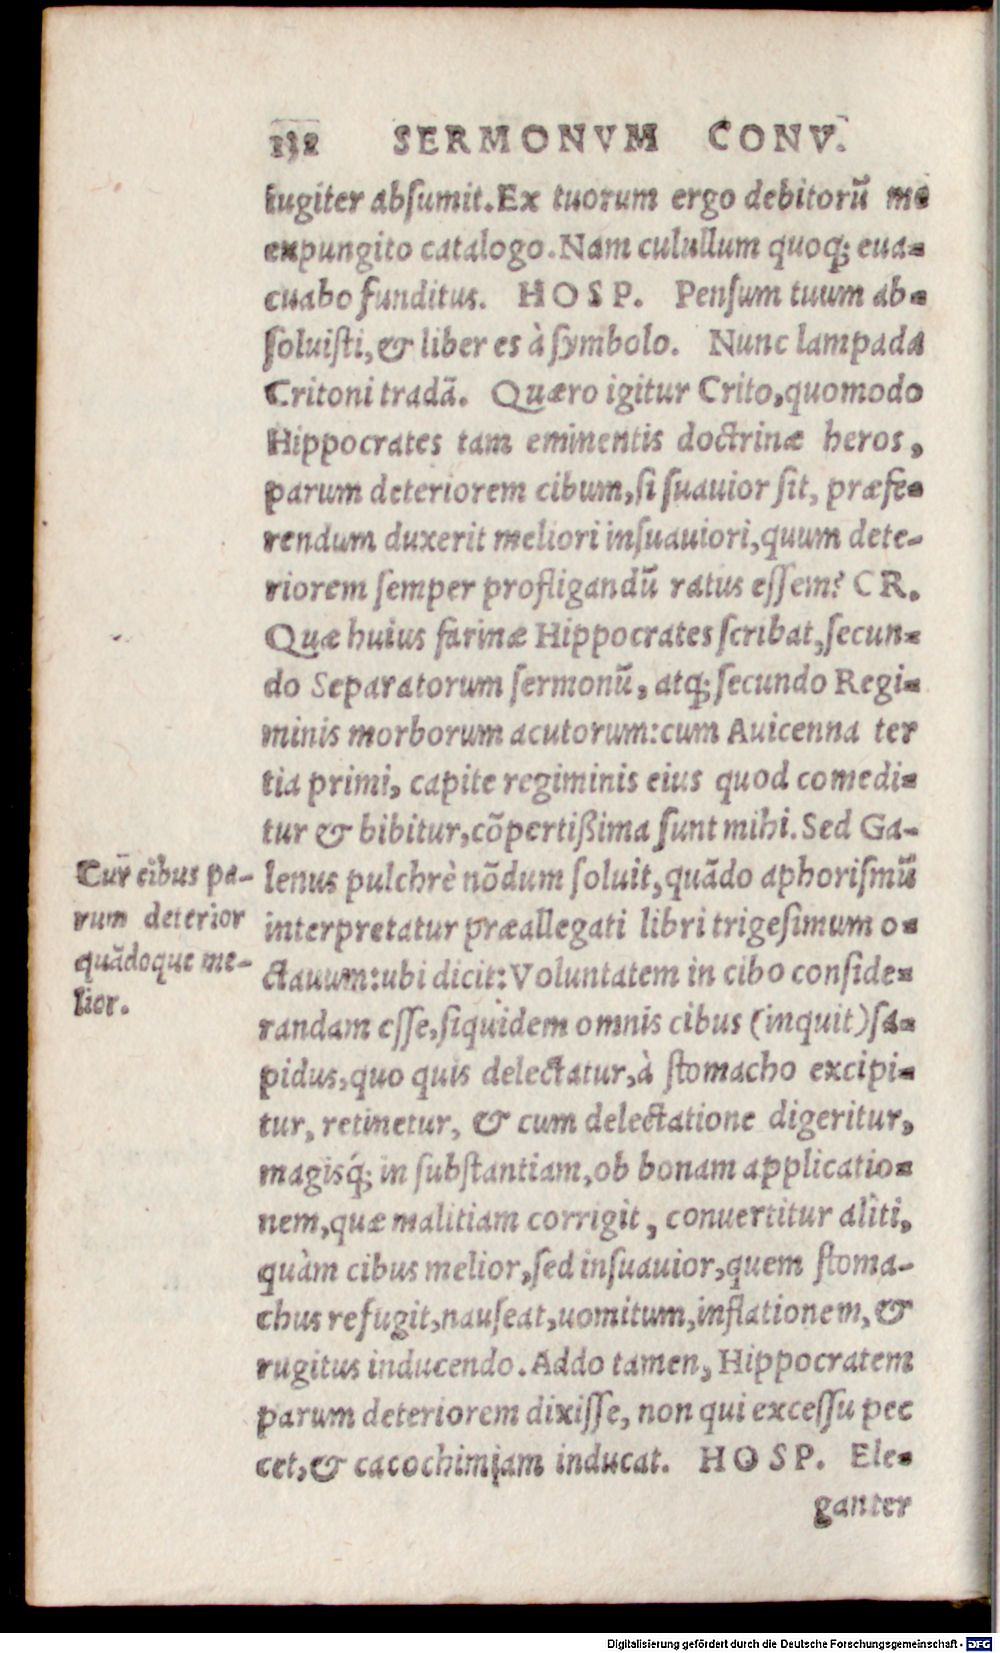 132 SERMONVM CONV.
iugiter absumit. Ex tuorum ergo debitorũ me
expungito catalogo. Nam culullum quoq; eua-
cuabo funditus. HOSP. Pensum tuum ab-
soluisti, & liber es à symbolo. Nunc lampada
Critoni tradã. Quæro igitur Crito, quomodo
Hippocrates tam eminentis doctrinæ heros,
parum deteriorem cibum, si suauior sit, præfe-
rendum duxerit meliori insuauiori, quum dete-
riorem semper profligandũ ratus essem? CR.
Quæ huius farinæ Hippocrates scribat, secun-
do Separatorum sermonũ, atq; secundo Regi-
minis morborum acutorum: cum Auicenna ter
tia primi, capite regiminis eius quod comedi-
tur & bibitur, cõpertißima sunt mihi. Sed Ga-
lenus pulchrè nõdum soluit, quãdo aphorismũ
interpretatur præallegati libri trigesimum o-
ctauum: ubi dicit: Voluntatem in cibo conside-
randam esse, siquidem omnis cibus (inquit) sa-
pidus, quo quis delectatur, à stomacho excipi-
tur, retinetur, & cum delectatione digeritur,
magisq́; in substantiam, ob bonam applicatio-
nem, quæ malitiam corrigit, conuertitur aliti,
quàm cibus melior, sed insuauior, quem stoma-
chus refugit, nauseat, uomitum, inflationem, &
rugitus inducendo. Addo tamen, Hippocratem
parum deteriorem dixisse, non qui excessu pec
cet, & cacochimiam inducat. HOSP. Ele-
ganter
Cur cibus pa-
rum deterior
quãdoque me-
lior.
Digitalisierung gefördert durch die Deutsche Forschungsgemeinschaft - DFG